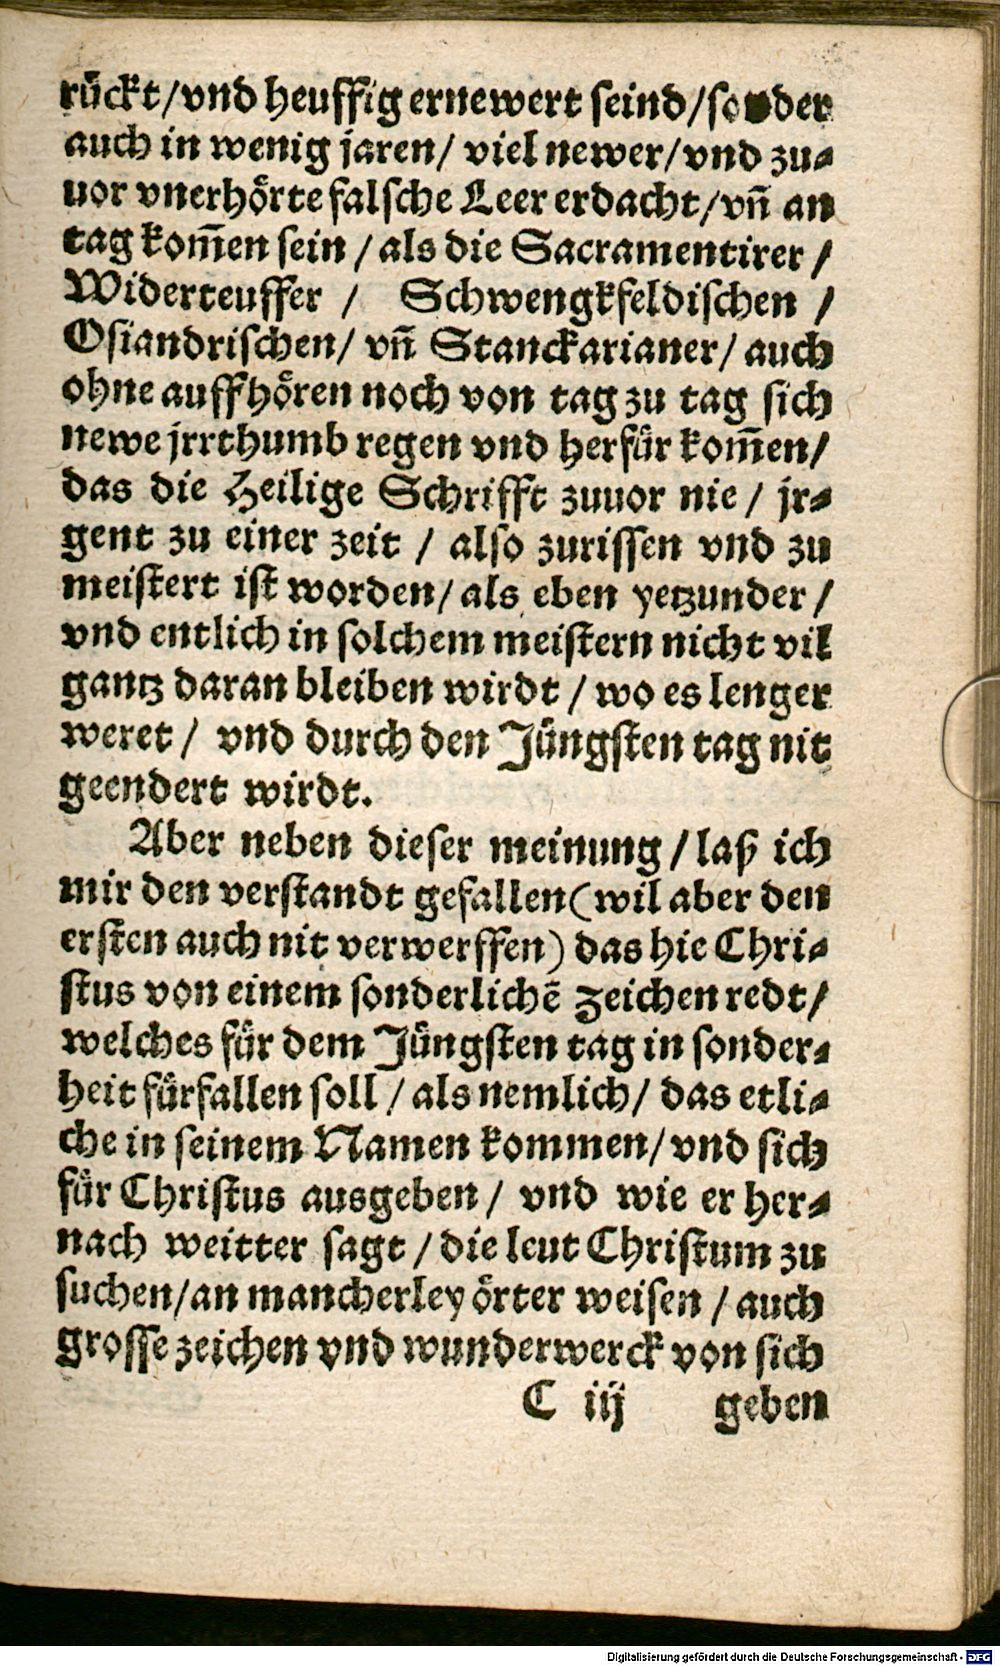 rückt/vnd heuffig ernewert seind/sonder
auch in wenig jaren/ viel newer/vnd zu-
uor vnerhörte falsche Leer erdacht/vñ an
tag kom̄en sein / als die Sacramentirer /
Widerteuffer / Schwengkfeldischen /
Osiandrischen/ vñ Stanckarianer/ auch
ohne auffhören noch von tag zu tag sich
newe jrrthumb regen vnd herfür kom̄en/
das die Heilige Schrifft zuuor nie / jr-
gent zu einer zeit / also zurissen vnd zu
meistert ist worden/ als eben yetzunder /
vnd entlich in solchem meistern nicht vil
gantz daran bleiben wirdt / wo es lenger
weret / vnd durch den Jüngsten tag nit
geendert wirdt.
Aber neben dieser meinung / laß ich
mir den verstandt gefallen (wil aber den
ersten auch nit verwerffen) das hie Chri-
stus von einem sonderlichē zeichen redt/
welches für dem Jüngsten tag in sonder-
heit fürfallen soll / als nemlich/ das etli-
che in seinem Namen kommen/ vnd sich
für Christus ausgeben / vnd wie er her-
nach weitter sagt / die leut Christum zu
suchen/an mancherley örter weisen / auch
grosse zeichen vnd wunderwerck von sich
C iij geben
Digitalisierung gefördert durch die Deutsche Forschungsgemeinschaft - DFG